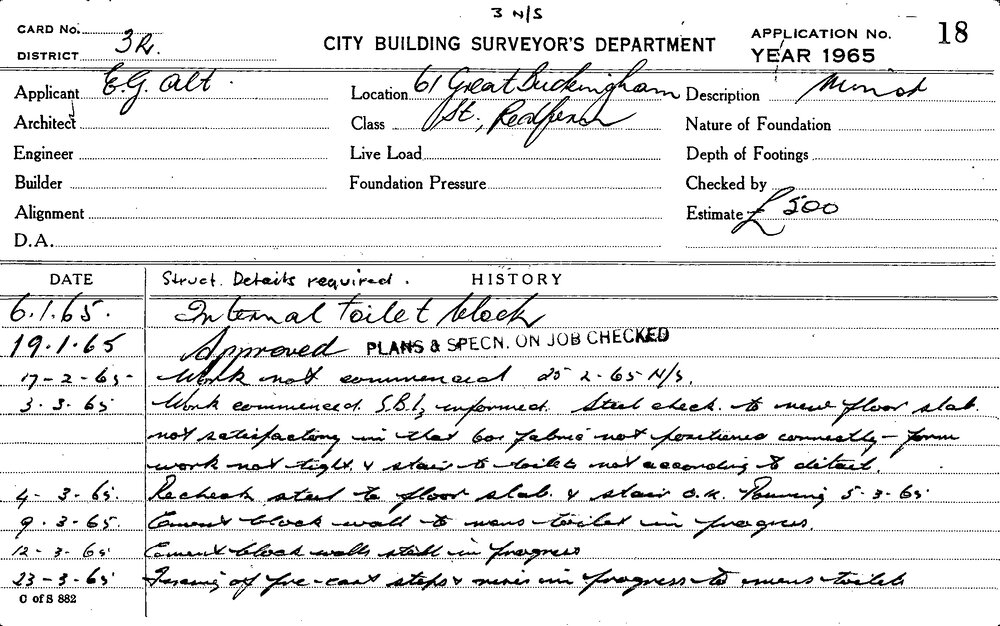 3 N/S
CARD No.
DISTRICT 3R.
CITY BUILDING SURVEYOR'S DEPARTMENT
APPLICATION No. 18
YEAR 1965
Applicant E.G. Alt. Location 61 Great Buckingham Description
Architect Class St., Redfern Nature of Foundation
Engineer Live Load Depth of Footings
Builder Foundation Pressure Checked by
Alignment Estimate £500
D.A.
DATE Struct. Details required. HISTORY
6.1.65. Internal toilet block
19.1.65 Approved PLANS & SPECN. ON JOB CHECKED
17-2-65- Work not commenced 25 2-65 N/S.
3-3-65 Work commenced. S.B.I. informed. Steel check. to new floor slab.
not satisfactory in that 601 fabric not positioned correctly - form
work not tight. & stair to toilets not according to detail.
4-3-65. Recheck steel to floor slab. & stair O.K. Pouring 5-3-65
9-3-65. Cement block wall to mens toilet in progress.
12-3-65 Cement block walls still in progress
23-3-65 of pre-cast steps & in progress to mens toilets
C of S 882